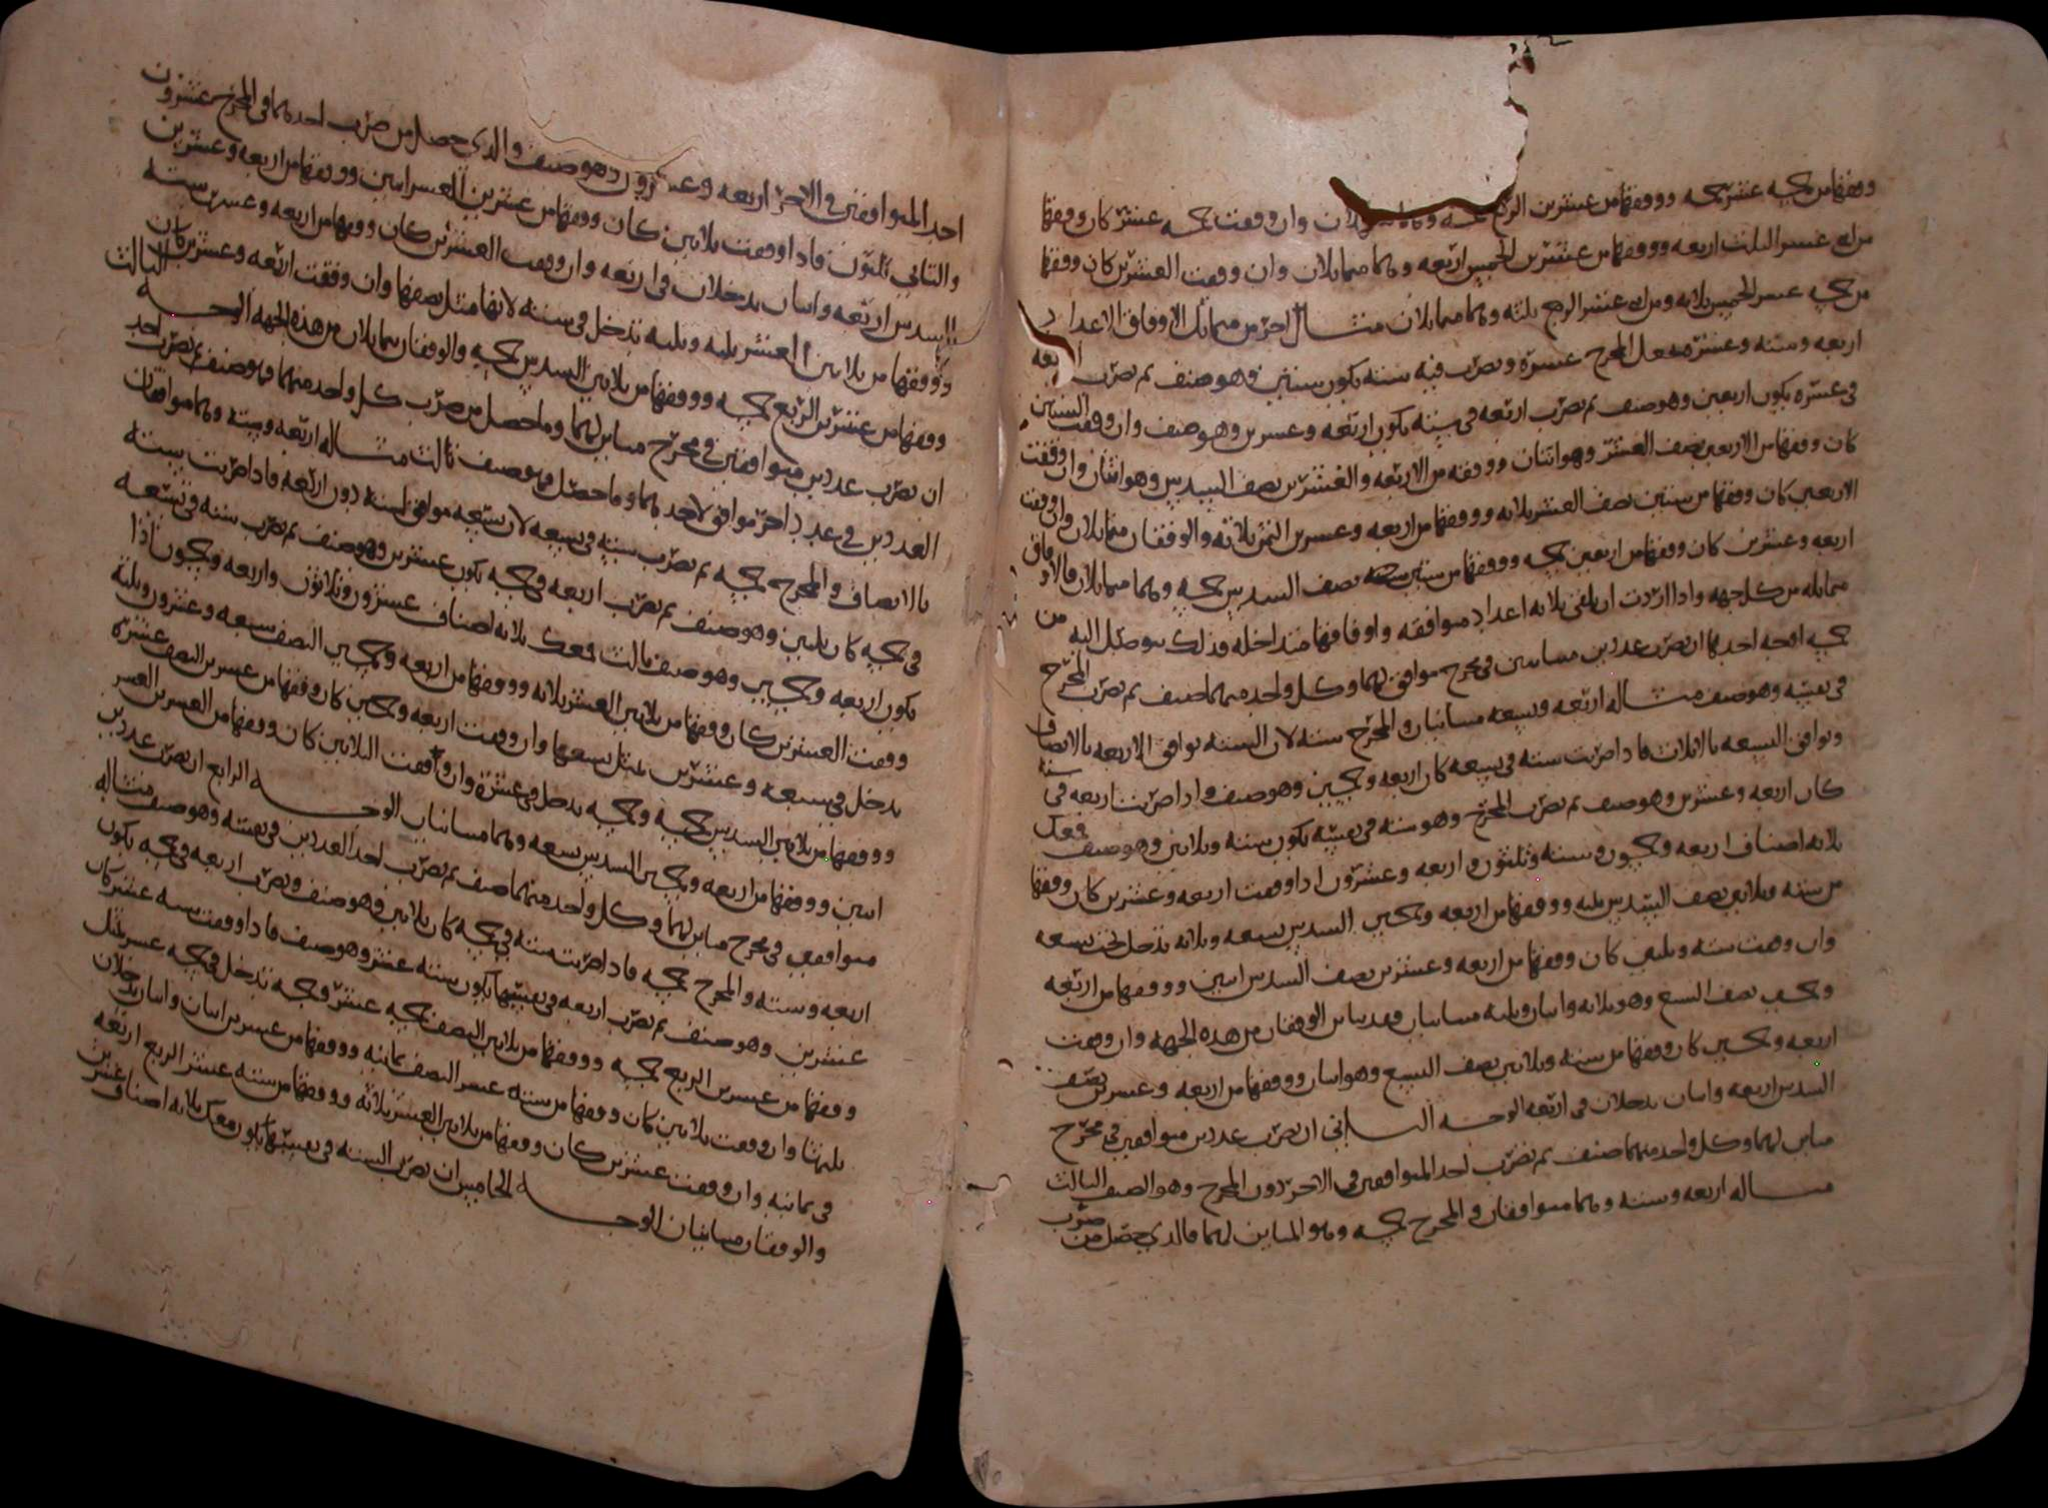 ووفقها من خمسه عشر خمسه ووفقها من عشرين الربع خمسه وهما متماثلان وان وقفت خمسه عشر كان ووفقها
من اثنى عشر الثلث اربعه ووفقها من عشرين الخمس اربعه وهما متماثلان وان وقفت العشرين كان ووفقها
من خمسه عشر الخمس ثلاثه ومن اثنى عشر الربع ثلثه وهما متماثلان مثال اخر من متماثل الاوفاق الاعداد
اربعه وسته وعشره فتجعل المخرج عشره وتضرب فيه سته يكون ستين فهو صنف ثم تضرب اربعه
فى عشره يكون اربعين وهو صنف ثم تضرب اربعه فى سته يكون اربعه وعشرين وهو صنف وان وقفت الستين
كان ووفقها من الاربعين نصف العشر وهو اثنان ووفقه من الاربعه والعشرين نصف السدس وهو اثنان وان وقفت
الاربعين كان ووفقها من ستين نصف العشر ثلاثه ووفقها من اربعه وعشرين الثمن ثلاثه والوفقان متماثلان وان وقفت
اربعه وعشرين كان ووفقها من اربعين خمسه ووفقها من ستين نصف السدس خمسه وهما متماثلان فالاوفاق
متماثله من كل جهه واذا اردت ان تلقى ثلاثه اعداد متوافقه واوفاقها متداخله فذلك يتوصل اليه من
خمسه اوجه احدها ان تضرب عددين متباينين فى مخرج موافق لهما وكل واحد منهما صنف ثم تضرب المخرج
فى نفسه وهو صنف مثاله اربعه وتسعه متباينان والمخرج سته لان السته توافق الاربعه بالانصاف
وتوافق التسعه بالاثلاث فاذا ضربت سته فى تسعه كان اربعه وخمسين وهو صنف واذا ضربت اربعه فى سته
كان اربعه وعشرين وهو صنف ثم تضرب المخرج وهو سته فى نفسه يكون سته وثلاثين وهو صنف فمعك
ثلاثه اصناف اربعه وخمسون وسته وثلثون واربعه وعشرون اذا وقفت اربعه وعشرين كان ووفقها
من سته وثلاثين نصف السدس ثلثه ووفقها من اربعه وخمسين السدس تسعه وثلاثه تدخل تحت تسعه
وان وقفت سته وثلثين كان ووفقها من اربعه وعشرين نصف السدس اثنين ووفقها من اربعه
وخمسين نصف التسع وهو ثلاثه واثنان وثلثه متباينان وقد تباين الوفقان من هذه الجهه وان وقفت
اربعه وخمسين كان ووفقها من سته وثلاثين نصف التسع وهو اثنان ووفقها من اربعه وعشرين نصف
السدس اربعه واثنان يدخلان فى اربعه الوجه الثانى ان تضرب عددين متوافقين فى مخرج
مباين لهما وكل واحد منهما صنف ثم تضرب احد المتوافقين فى الاخر دون المخرج وهو الصنف الثالث
مثاله اربعه وسته وهما متوافقان والمخرج خمسه وهو المباين لهما فالذى حصل من ضرب
احد المتوافقين فى الاخر اربعه وعشرون وهو صنف والذى حصل من ضرب احدهما فى المخرج عشرون
والثانى ثلثون فاذا وقفت ثلاثين كان ووفقها من عشرين العشر اثنين ووفقها من اربعه وعشرين
السدس اربعه واثنان يدخلان فى اربعه وان وقفت العشرين كان ووفقها من اربعه وعشرين سته
ووفقها من ثلاثين العشر ثلثه وثلثه تدخل فى سته لانها مثل نصفها وان وقفت اربعه وعشرين كان
ووفقها من عشرين الربع خمسه ووفقها من ثلاثين السدس خمسه والوفقان متماثلان من هذه الجهه الوجه الثالث
ان تضرب عددين متوافقين فى مخرج مباين لهما وما حصل من ضرب كل واحد منهما فهو صنف ثم تضرب احد
العددين فى عدد اخر موافق لاحدهما وما حصل فهو صنف ثالث مثاله اربعه وسته وهما متوافقان
بالانصاف والمخرج خمسه ثم تضرب سته فى تسعه لان تسعه موافق لسته دون اربعه فاذا ضربت سته
فى خمسه كان ثلثين وهو صنف ثم تضرب اربعه فى خمسه يكون عشرين وهو صنف ثم تضرب سته فى تسعه
يكون اربعه وخمسين وهو صنف ثالث فمعك ثلاثه اصناف عشرون وثلاثون واربعه وخمسون اذا
وقفت العشرين كان ووفقها من ثلاثين العشر ثلاثه ووفقها من اربعه وخمسين النصف سبعه وعشرون وثلثه
تدخل فى سبعه وعشرين مثل تسعها وان وقفت اربعه وخمسين كان ووفقها من عشرين النصف عشره
ووفقها من ثلاثين السدس خمسه وخمسه تدخل فى عشره وان وقفت الثلاثين كان ووفقها من العشرين العشر
اثنين ووفقها من اربعه وخمسين السدس تسعه وهما متباينان الوجه الرابع ان تضرب عددين
متوافقين فى مخرج مباين لهما وكل واحد منهما صنف ثم تضرب احد العددين فى نفسه وهو صنف مثاله
اربعه وسته والمخرج خمسه فاذا ضربت سته فى خمسه كان ثلاثين فهو صنف وتضرب اربعه فى خمسه يكون
عشرين وهو صنف ثم تضرب اربعه فى نفسها يكون سته عشر وهو صنف فاذا وقفت سته عشر كان
ووفقها من عشرين الربع خمسه ووفقها من ثلاثين النصف خمسه عشر فخمسه تدخل فى خمسه عشر مثل
ثلثها وان وقفت ثلاثين كان ووفقها من سته عشر النصف ثمانيه ووفقها من عشرين اثنان واثنان يدخلان
فى ثمانيه وان وقفت عشرين كان ووفقها من ثلاثين العشر ثلاثه ووفقها من سته عشر الربع اربعه
والوفقان متباينان الوجه الخامس ان تضرب السته فى نفسها يكون فمعك ثلاثه اصناف عشرين